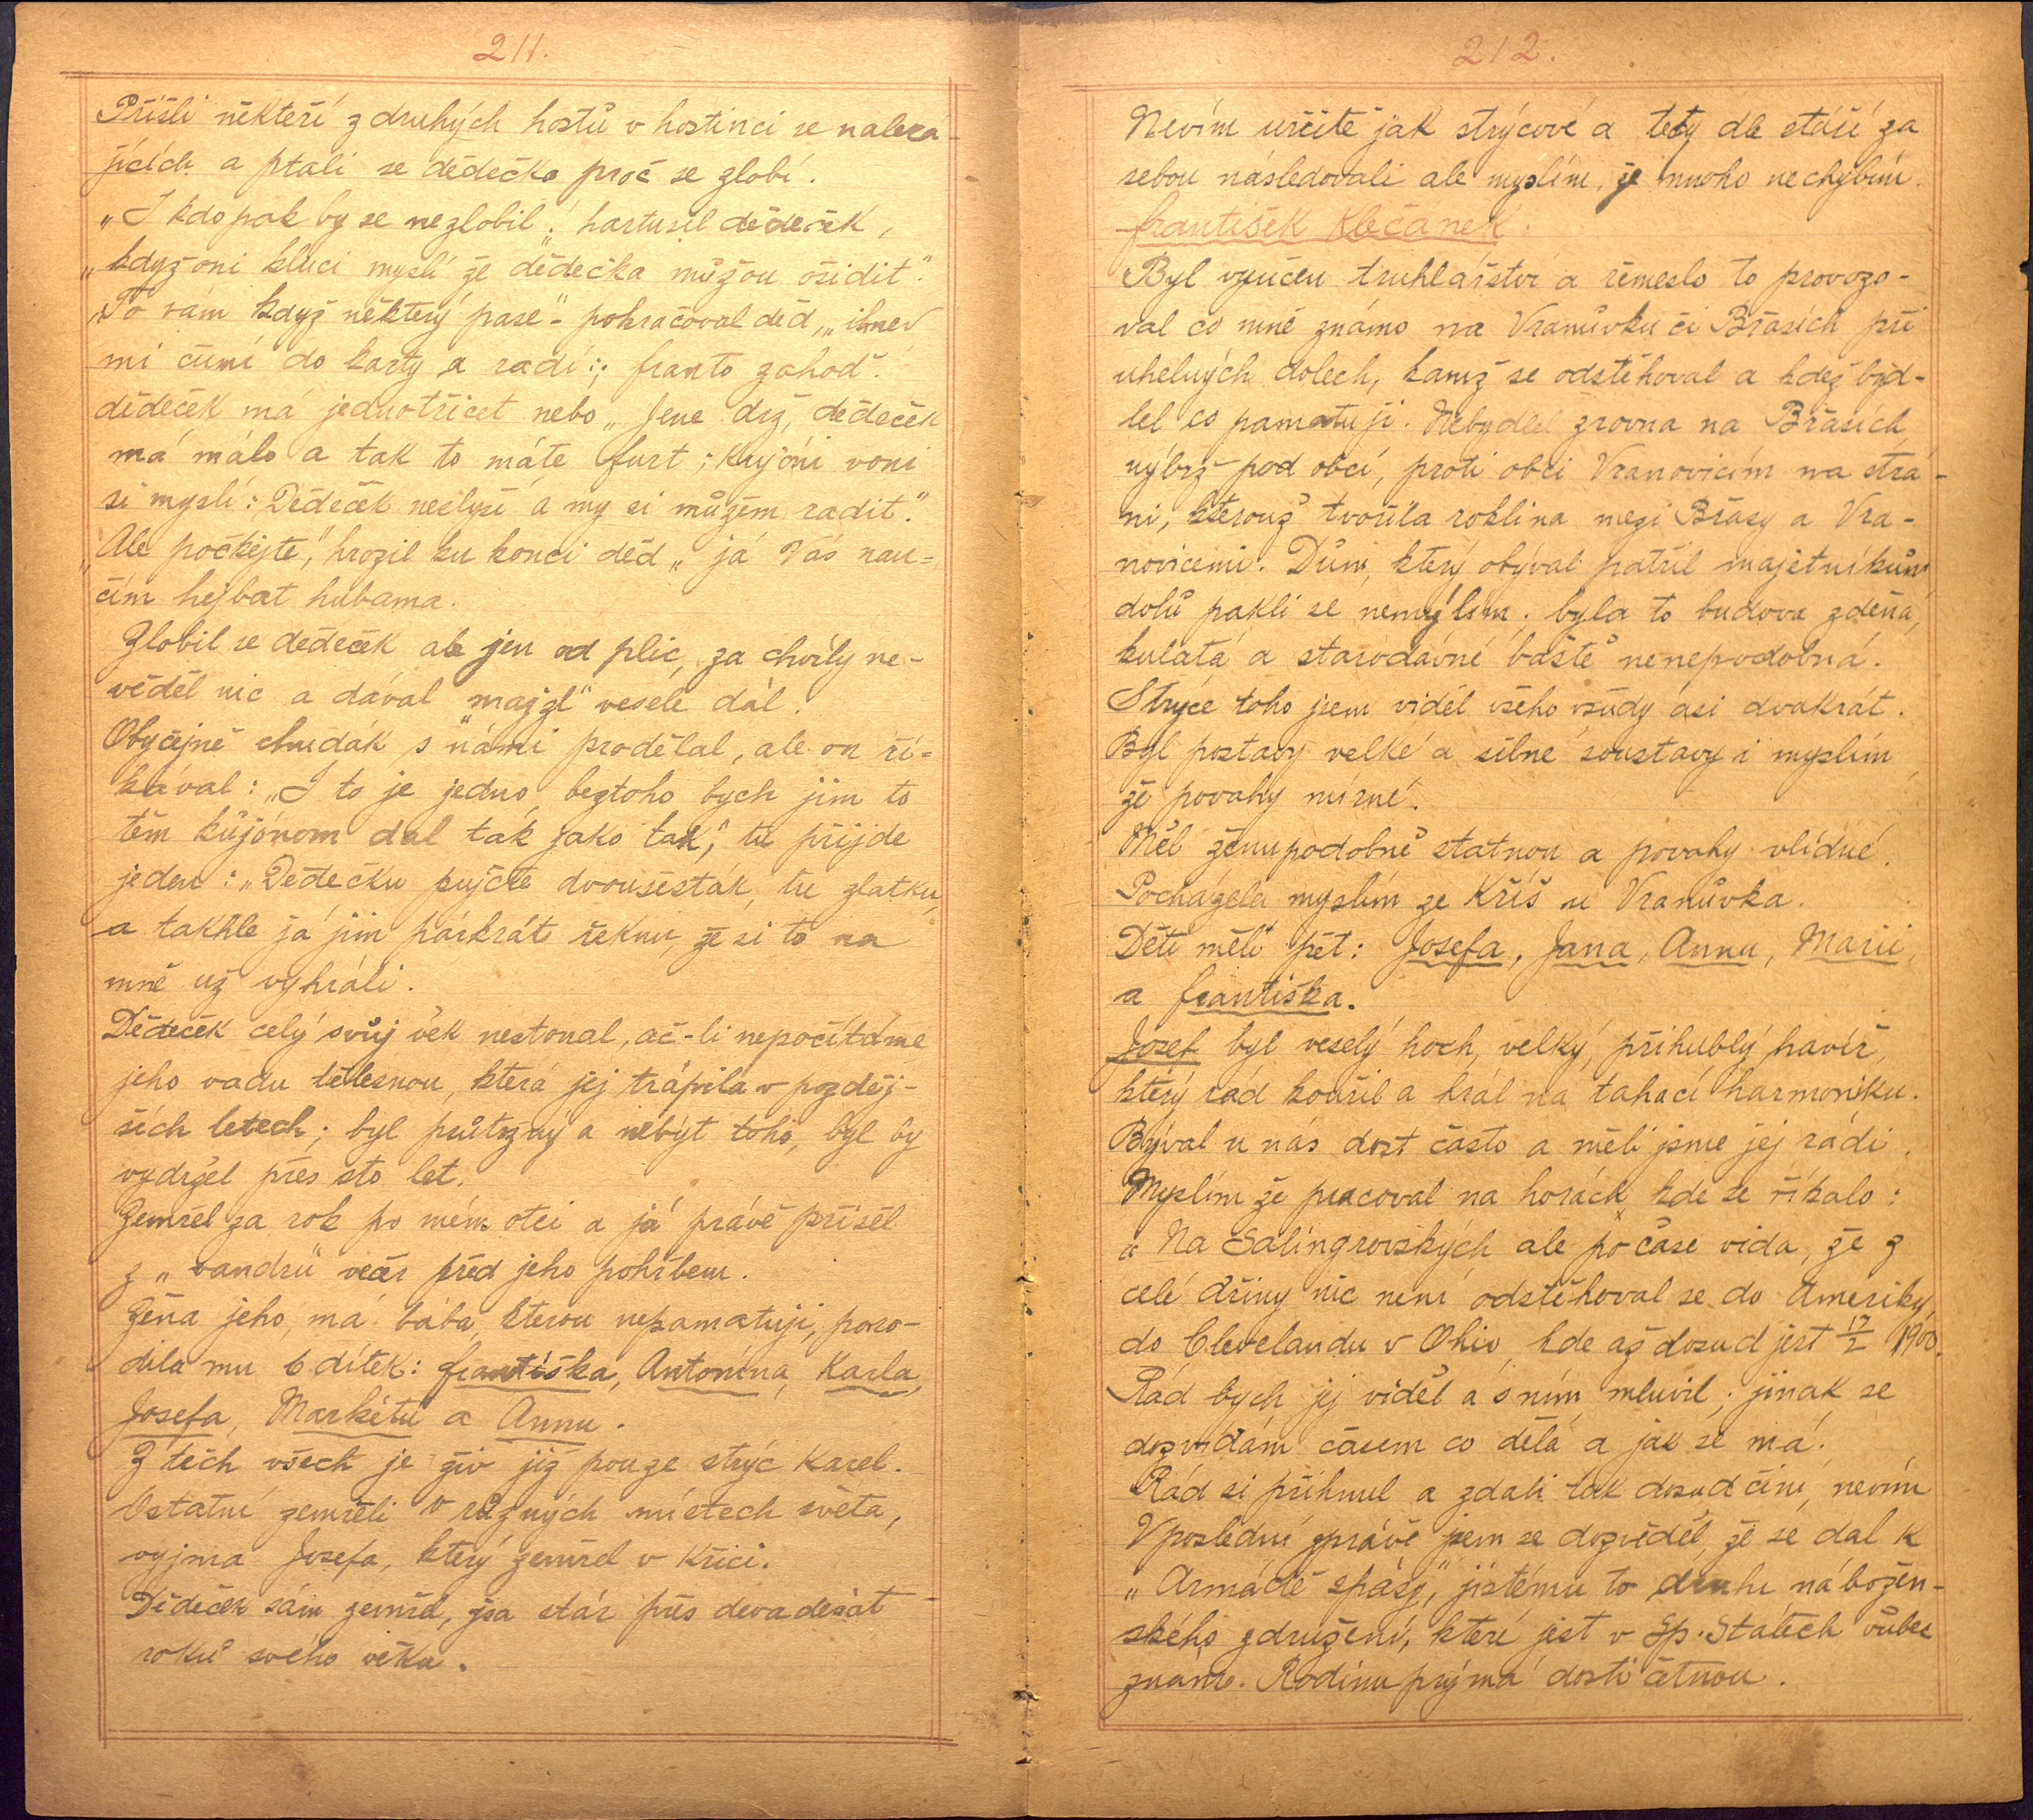 211.
Přišli někteří z druhých hostů v hostinci se naleza-
jících a ptali se dědečka proč se zlobí.
„I kdo pak by se nezlobil", hartusil dědeček,
„když oni kluci myslí že dědečka můžou ošidit".
„To vám když některý pase"- pohračoval děd, „ihned
mi čumí do karty a radí:; franto zahoď.
dědeček má jednotřicet nebo „Jene drž, dědeček
má málo a tak to máte furt; kujóni voni
si myslí: Dědeček neslyší a my si můžem radit."
„Ale počkejte," hrozil ku konci děd „já Vás nau=
čím hejbat hubama.
Zlobil se dědeček ale jen od plic, za chvíly ne-
věděl nic a dával „majzl" vesele dál.
Obyčejně chudák s námi prodělal, ale on ří=
kával: „I to je jedno, beztoho bych jim to
těm kůjónom dal tak jako tak", tu přijde
jeden: „Dědečku pujčte dvoušesták, tu zlatku,
a takhle já jim párkrát řeknu, že si to na
mně už vyhráli.
Dědeček celý svůj věk nestonal, ač-li nepočítáme
jeho vadu tělesnou, která jej trápila v pozděj-
ších letech; byl průtržný a nebýt toho, byl by
vydržel přes sto let.
Zemřel za rok po mém otci a já právě přišel
z „vandru" večer před jeho pohřbem.
Žena jeho, má bába, kterou nepamatuji, poro-
dila mu 6 dítek: františka, Antonína, Karla,
Josefa, Markétu a Annu.
Z těch všech je živ již pouze strýc Karel.
Ostatní zemřeli v různých místech světa,
vyjma Josefa, který zemřel v Křici.
Dědeček sám zemřel, jsa stár přes devadesát
roků svého věku.
212.
Nevím určitě jak strýcové a tety dle stáří za
sebou následovali ale myslím, že mnoho nechybím.
františek Klečanek.
Byl vyučen truhlářství a řemeslo to provozo-
val co mně známo na Vranůvku či Břasích při
uhelných dolech, kamž se odstěhoval a kdež byd-
lel co pamatuji. Nebydlel zrovna na Břasích,
nýbrž pod obcí, proti obci Vranovicím na strá-
ni, kterouž tvořila roklina mezi Břasy a Vra-
novicemi. Dům, který obýval patřil majetníkům
dolů pakli se nemýlím. byla to budova zděná,
kulatá a starodávné baště nenepodobná.
Strýce toho jsem viděl všeho všudy asi dvakrát.
Byl postavy velké a silné soustavy i myslím,
že povahy mírné.
Měl ženu podobně statnou a povahy vlídné.
Pocházela myslím ze Kříš u Vranůvka.
Děti měli pět: Josefa, Jana, Annu, Marii,
a františka.
Josef byl veselý hoch, velký, přihublý havíř,
který rád kouřil a hrál na tahací harmoniku.
Býval u nás dost často a měli jsme jej rádi.
Myslím že pracoval na horách, kde se říkalo:
„Na Salingrovských, ale po čase vida, že z
celé dřiny nic není odstěhoval se do Ameriky,
do Clevelandu v Ohio, kde až dosud jest 17/2 1900.
Rád bych jej viděl a s ním mluvil; jinak se
dozvídám časem co dělá a jak se má.
Rád si přihnul a zdali tak dosud činí, nevím
V poslední zprávě jsem se dozvěděl, že se dal k
„Armádě spásy", jistému to druhu nábožen-
ského združení, které jest v Sp. Státech vůbec
známo. Rodinu prý má dosti četnou.